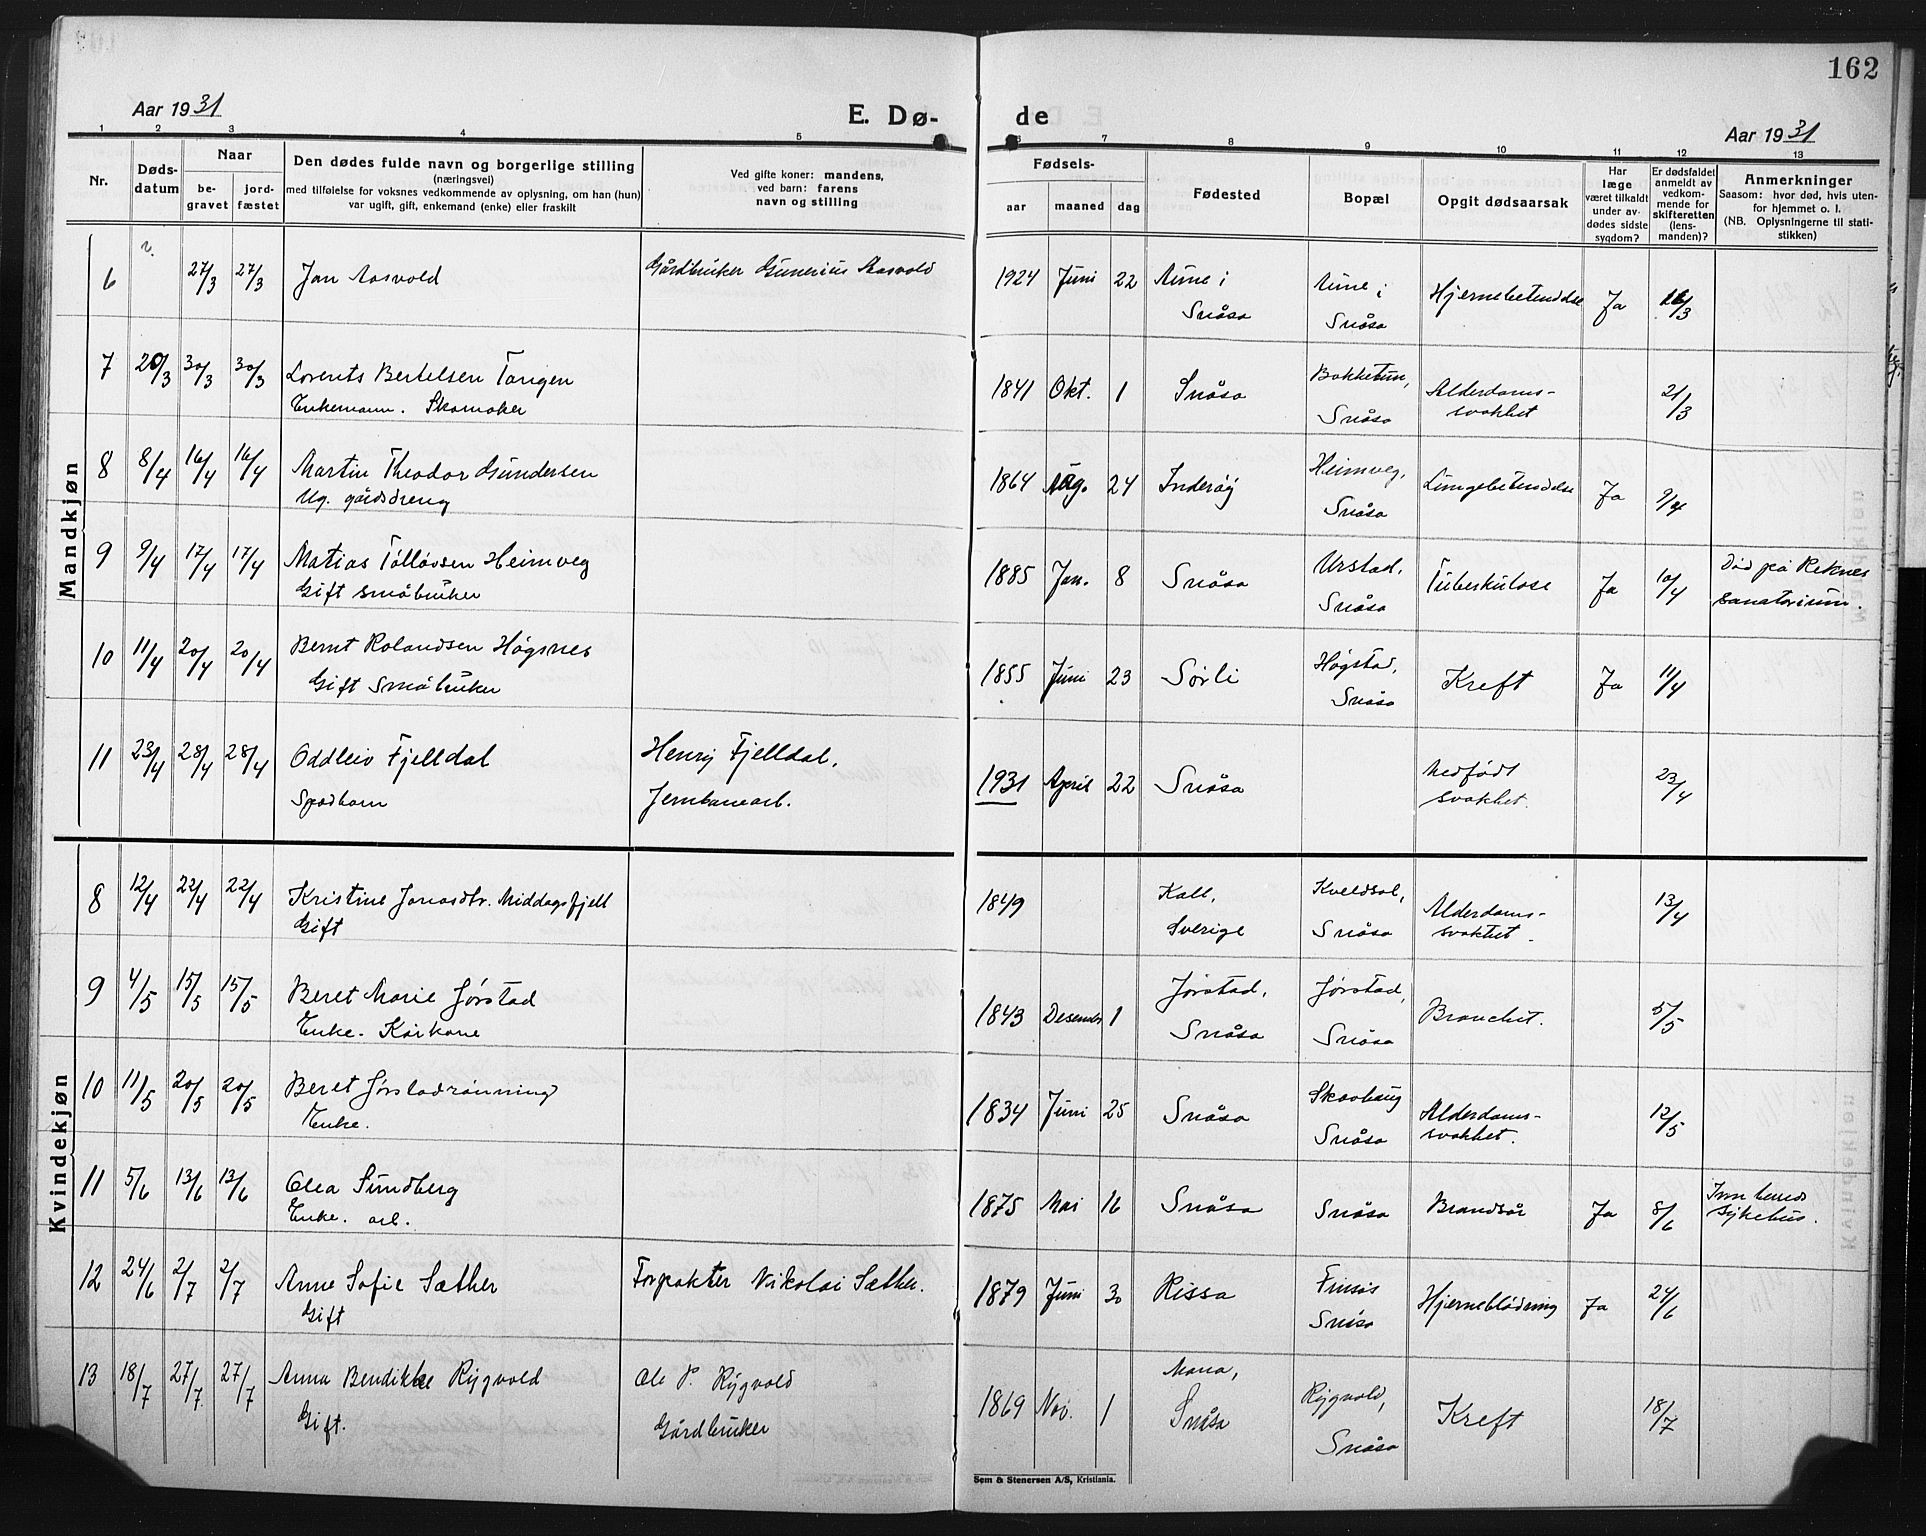 162
Aar 1931
E. Dø-
de
Aar 1931
1 2 3 4 5 6 7 8 9 10 11 12 13
Nr.
Døds-
datum
Naar
be-
gravet
jord-
fæstet
Den dødes fulde navn og borgerlige stilling
(næringsvei)
med tilføielse for voksnes vedkommende av oplysning, om han (hun)
var ugift, gift, enkemand (enke) eller fraskilt
Ved gifte koner: mandens,
ved barn: farens
navn og stilling
Fødsels-
aar maaned dag
Fødested
Bopæl
Opgit dødsaarsak
Har
læge
været tilkaldt
under av-
dødes sidste
sygdom?
Er dødsfaldet
anmeldt av
vedkom-
mende for
skifteretten
(lens-
manden)?
Anmerkninger
Saasom: hvor død, hvis uten-
for hjemmet o. l.
(NB. Oplysningerne til stati-
stikken)
Mandkjøn
6 27/3 27/3 Jan Aasvold Gårdbruker Gunerius Aasvold 1924 Juni 22 Aune i Aune i Hjernebetendelse Ja /3
Snåsa Snåsa
7 20/3 30/3 30/3 Lorents Bertelsen Tangen 1841 Okt. 1 Snåsa Bakketun, Alderdoms- 21/3
Enkemann. Skomaker Snåsa svakhet
8 8/4 16/4 16/4 Martin Theodor Gundersen 1864 Aug. 24 Inderøy Heimveg, Lungebetendelse Ja 9/4
Ug. gårdsdreng Snåsa
9 9/4 17/4 17/4 Matias Tølløvsen Heimveg 1885 Jan. 8 Snåsa Urstad, Tuberkulose Ja 10/4 Død på Reknes
Gift småbruker Snåsa sanatorium.
10 11/4 20/4 20/4 Bernt Rolandsen Høgsnes 1855 Juni 23 Sørli Høgstad, Kreft Ja 11/4
Gift småbruker Snåsa
11 23/4 28/4 28/4 Oddleiv Fjelldal Henry Fjelldal, 1931 April 22 Snåsa Medfødt 23/4
Spedbarn Jernbanearb. svakhet.
Kvindekjøn
8 12/4 22/4 22/4 Kristine Jonasdtr. Middagsfjell 1849 Kall, Kveldsol, Alderdoms- 13/4
Gift Sverige Snåsa svakhet.
9 4/5 15/5 15/5 Beret Marie Jørstad 1843 Desember 1 Jørstad, Jørstad, Bronchit. 5/5
Enke. Kårkone Snåsa Snåsa
10 11/5 20/5 20/5 Beret Jørstadrønning 1834 Juni 25 Snåsa Skavhaug Alderdoms- 12/5
Enke. Snåsa svakhet.
11 5/6 13/6 13/6 Olea Sundberg 1875 Mai 16 Snåsa Snåsa Brandsår Ja 8/6 Innherreds
Enke. arb. sykehus.
12 24/6 2/7 2/7 Anne Sofie Sæther Forpakter Nikolai Sæther. 1879 Juni 30 Rissa Finsås Hjerneblødning Ja 24/6
Gift Snåsa
13 18/7 27/7 27/7 Anna Bendikke Rygvold Ole P. Rygvold 1869 Nov. 1 Mona, Rygvold, Kreft 18/7
Gift. Gårdbruker Snåsa Snåsa
Sem & Stenersen A/S, Kristiania.